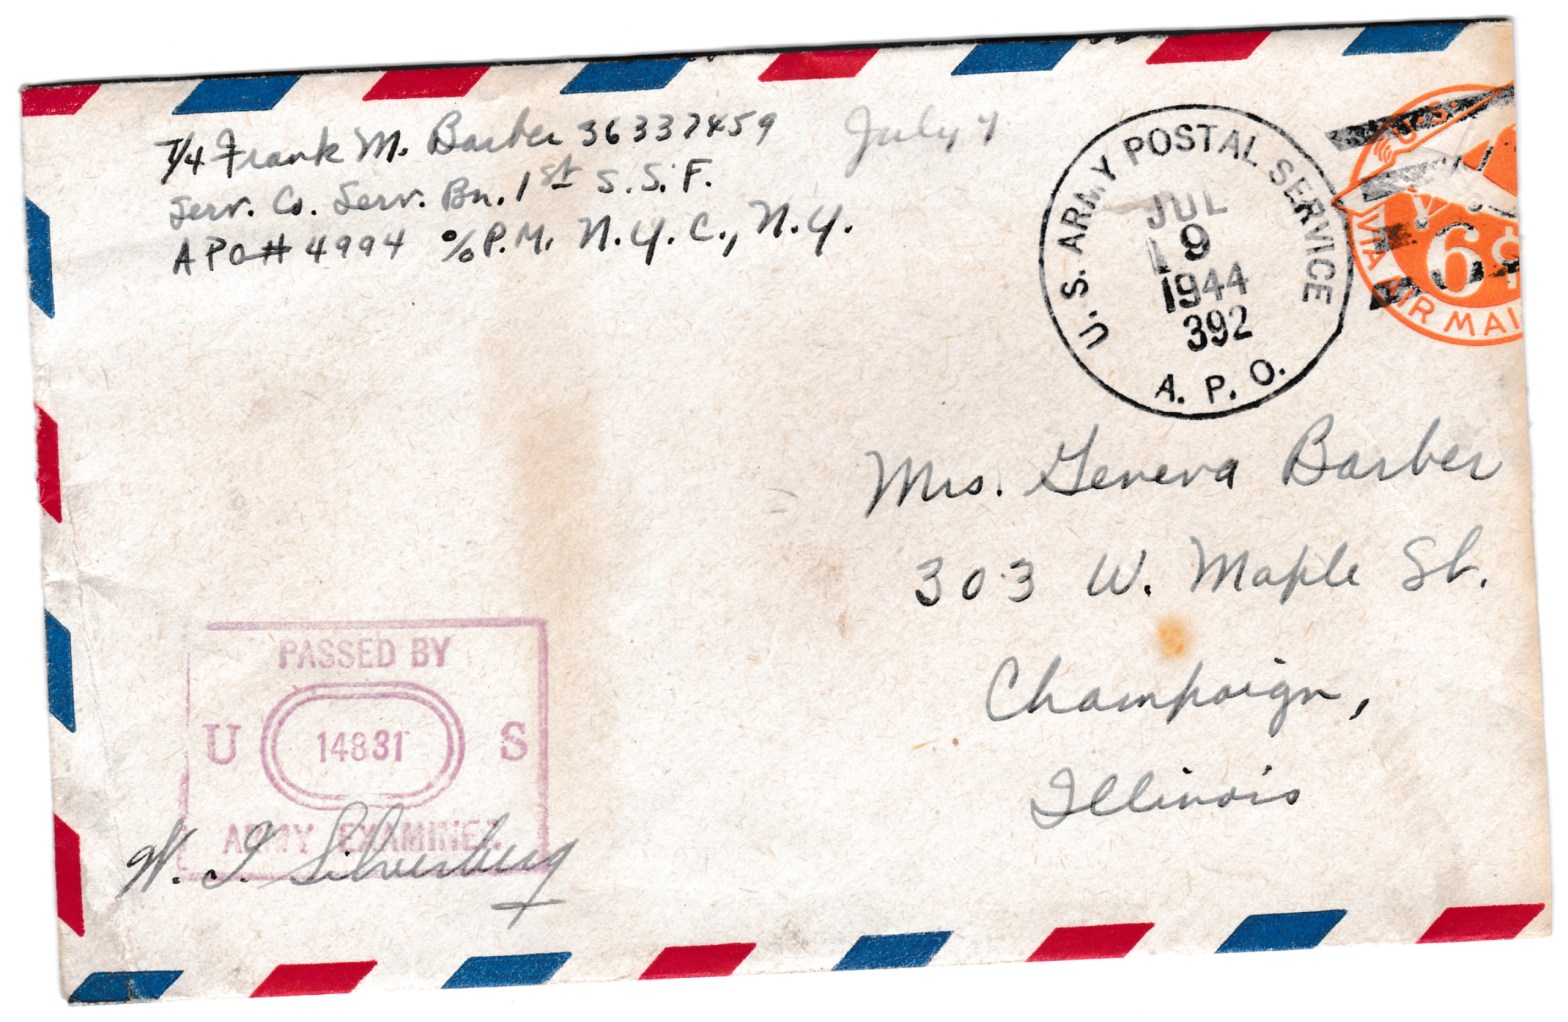 T/4 Frank M. Barber 36337459
Serv. Co. Serv. Bn. 1st S.S.F.
APO# 4994 c/o P.M. N.Y.C., N.Y.
July 7
U.S. ARMY POSTAL SERVICE
JUL
9
1944
392
A.P.O.
U.S.
6¢
VIA AIR MAI
Mrs. Geneva Barber
303 W. Maple St.
Champaign,
Illinois
PASSED BY
U 14831 S
ARMY EXAMINER
W. I. Silverberg